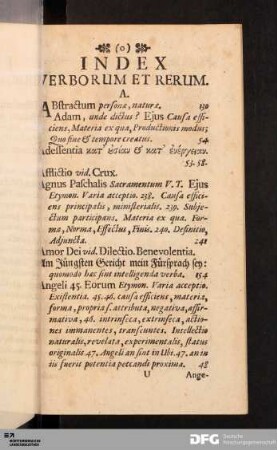 (0)
INDEX
VERBORUM ET RERUM.
A.
ABstractum personæ, naturæ. 130
Adam, unde dictus? Ejus Causa effi-
ciens, Materia ex qua, Productionis modus;
Quo fine & tempore creatus. 54
Adessentia κατ' ουσίαν & κατ' ενέργειαν.
53. 58.
Afflictio vid. Crux.
Agnus Paschalis Sacramentum V. T. Ejus
Etymon. Varia acceptio. 238. Causa effici-
ens principalis, ministerialis. 239. Subje-
ctum participans. Materia ex qua. For-
ma, Norma, Effectus, Finis. 240. Definitio,
Adjuncta. 241
Amor Dei vid. Dilectio. Benevolentia.
Am Jüngsten Gericht mein Fürsprach sey:
quomodo hæc sint intelligenda verba. 154
Angeli 45. Eorum Etymon. Varia acceptio.
Existentia. 45. 46. causa efficiens, materia,
forma, propria s. attributa, negativa, affir-
mativa, 46. intrinseca, extrinseca, actio-
nes immanentes, transeuntes. Intellectio
naturalis, revelata, experimentalis, status
originalis 47. Angeli an sint in Ubi. 47. an in
iis fuerit potentia peccandi proxima. 48
U Ange-